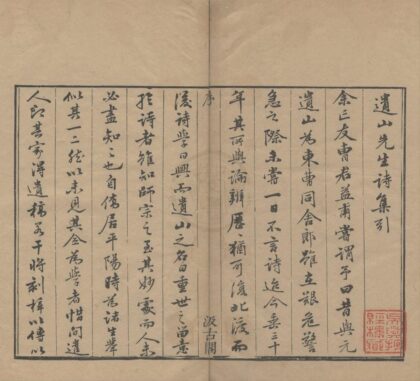 遺山先生詩集引
余亡友曹君益甫嘗謂予曰昔與元
遺山為東曹同舍郎雖在艱危警
急之際未嘗一日不言詩迨今垂三十
年其所與論辨歷歷猶可復北渡而
序
汲古閣
後詩學日興而遺山之名日重世之留意
於詩者雖知師宗之至其妙處而人未
必盡知之也自僑居平陽時為諸生舉
似其一二然以未見其全為學者惜間遣
人即其家得遺稿若干將刻梓以傳以